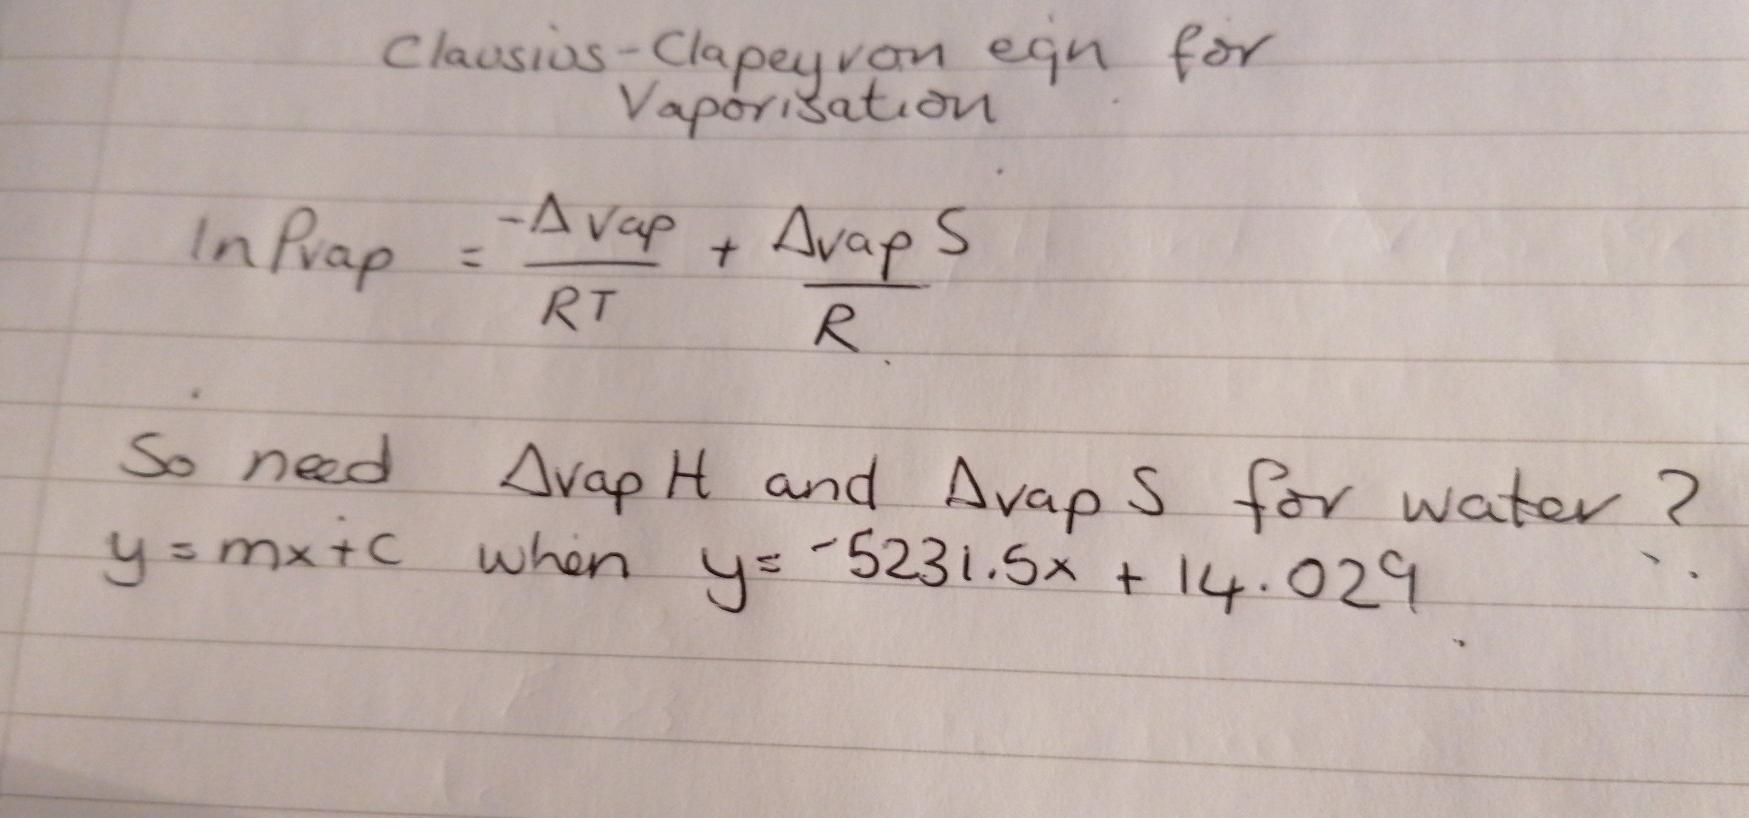 Clausius-Clapeyron eqn for
Vaporisation
ln Pvap = -Δvap/RT + Δvap S/R
So need Δvap H and Δvap S for water?
y = mx+c when y = -5231.5x + 14.029